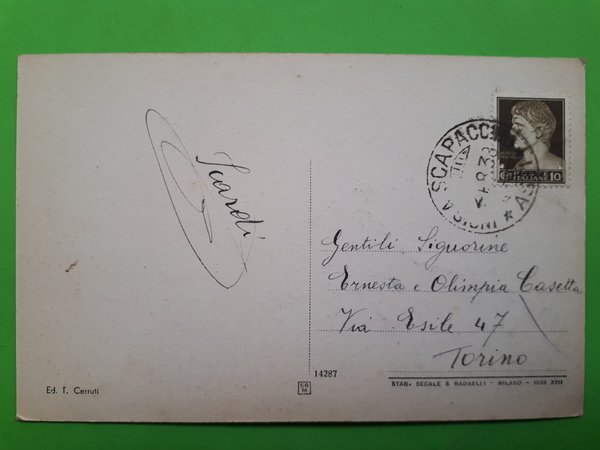 Scardi
SCAPACCINO
ASIGNI ★ AS
ITALIANE 10
Gentili Signorine
Ernesta e Olimpia Casetta
Via Esile 47
Torino
14287
SR
M
Ed. T. Cerruti
STAB. SEGALE & RADAELLI - MILANO - 1939 XVII